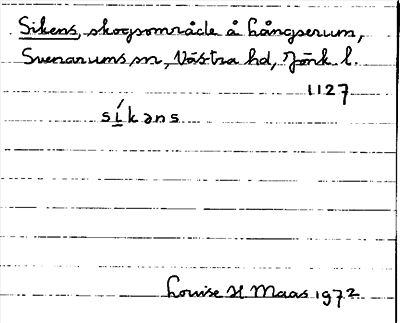 Sikens, skogsområde å Långserum,
Svenarums sn, Västra hd, Jönk l.
1127
síkəns
Louise H Maas 1972